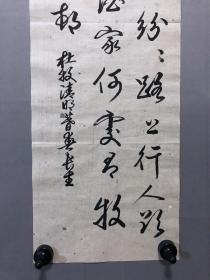 纷〻路上行人欲
酒家何處有牧
邨
杜牧清明